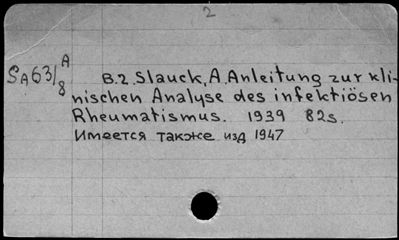 2
SA63/8 A
B.2. Slauck, A. Anleitung zur kli-
nischen Analyse des infektiösen
Rheumatismus. 1939 82s.
Имеется также изд 1947